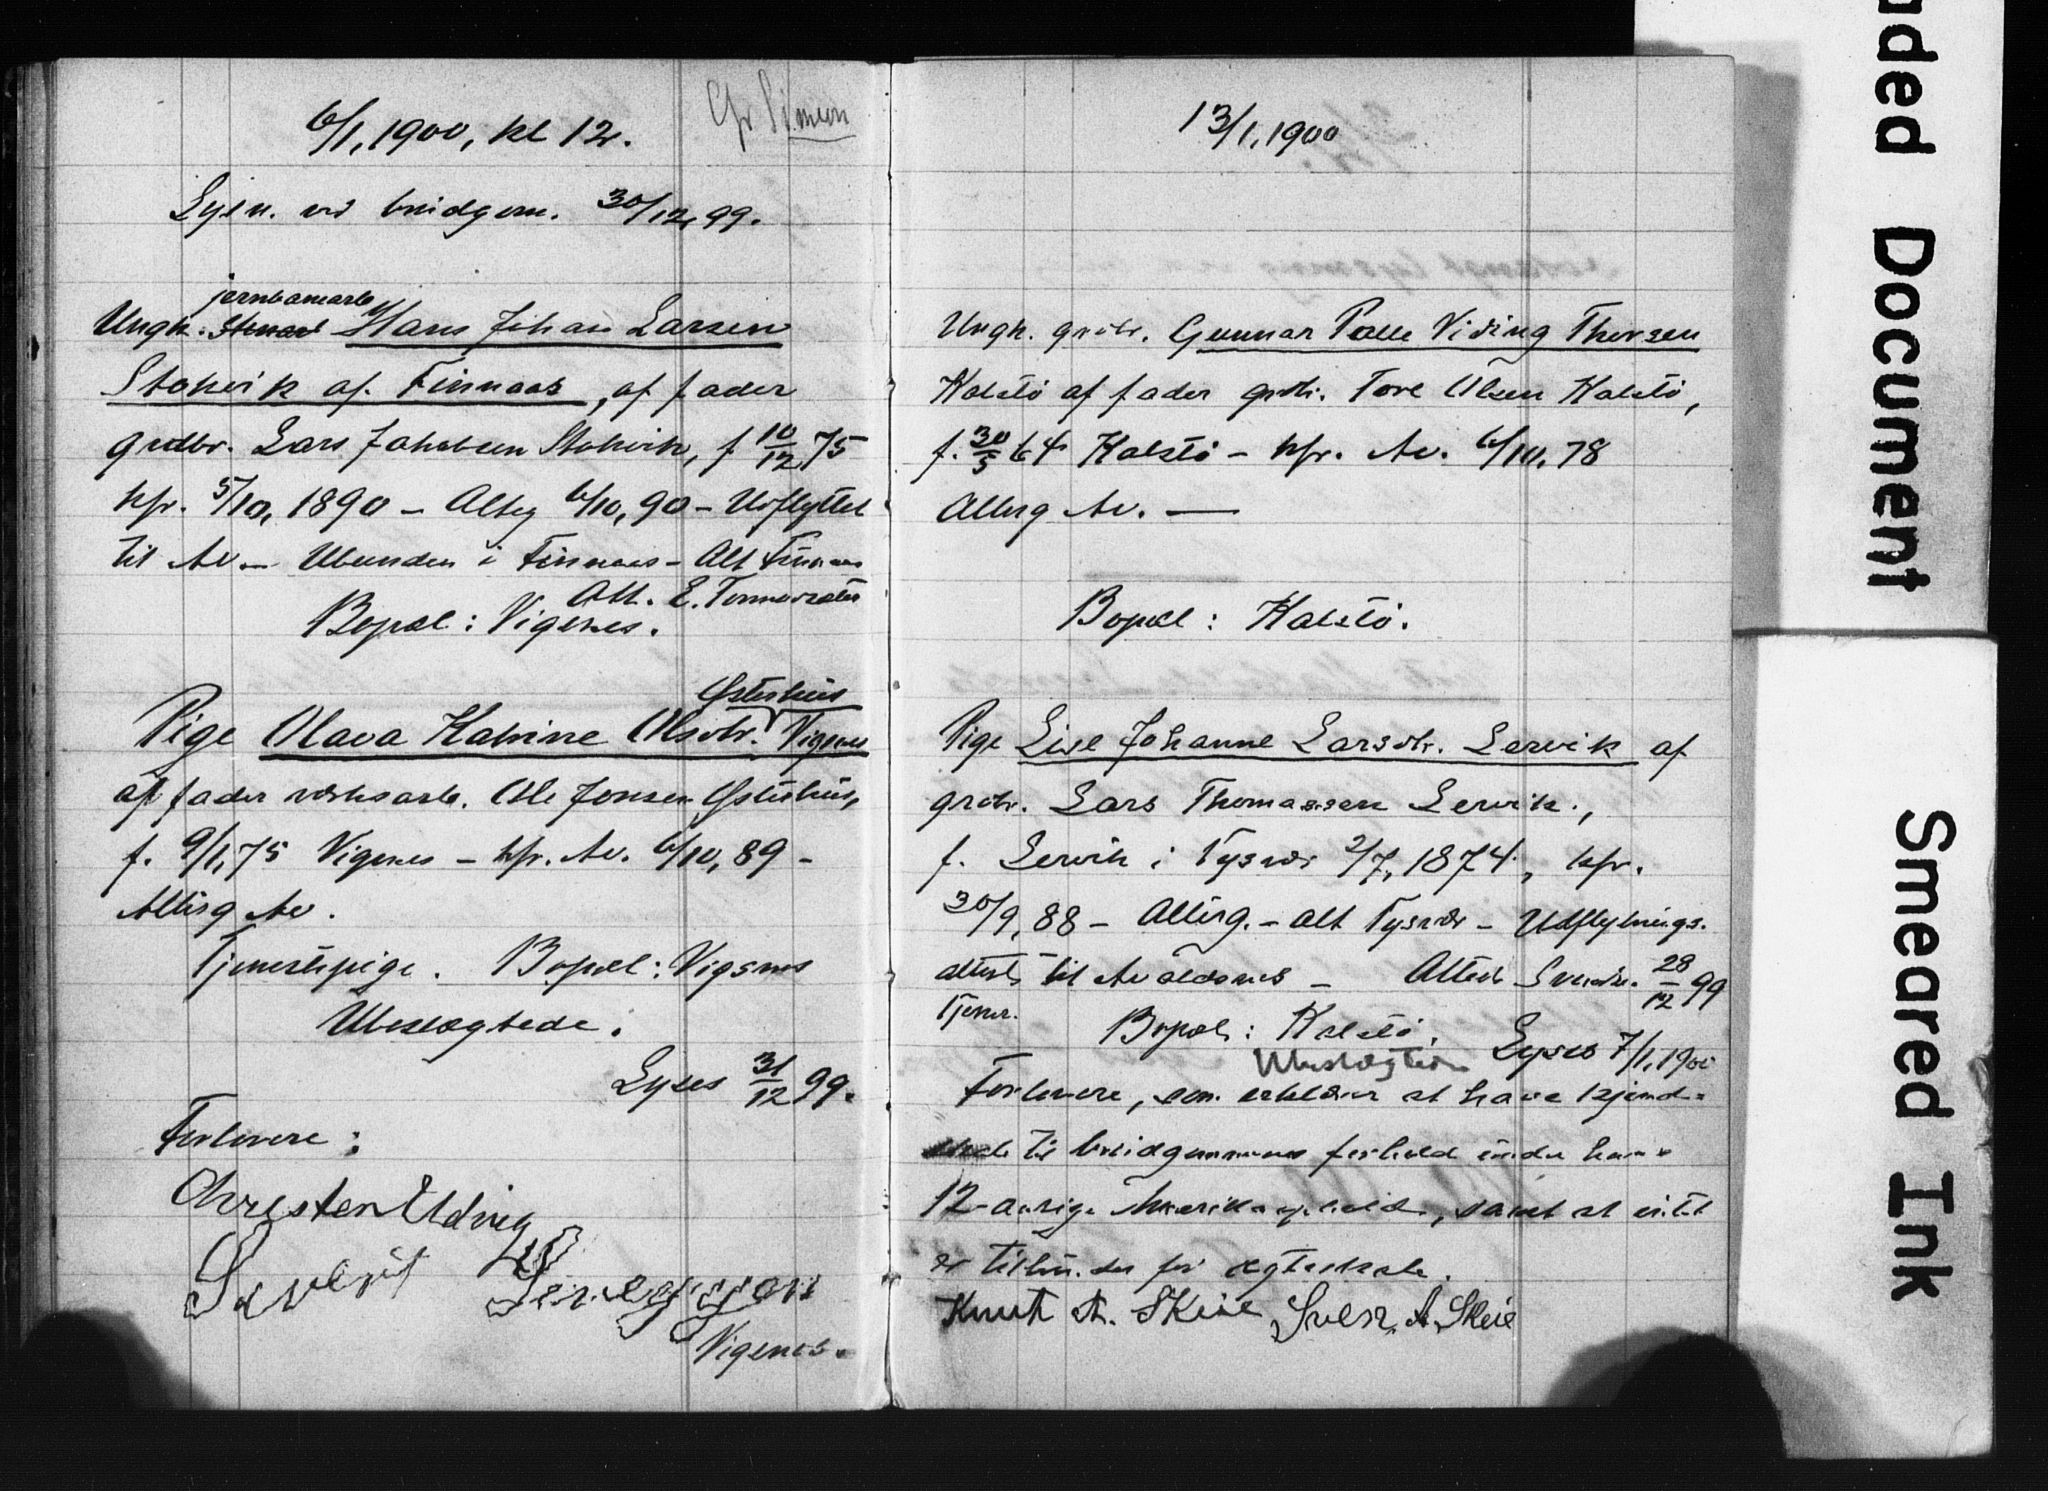 6/1, 1900, kl 12.
Lysn. ved bruidgom. 30/12, 99.
jernbanearb
Ungk. Hans Johan Larsen
Stokvik af Finnaas, af fader
grdbr. Lars Jakobsen Stokvik, f 10/12 75
kfr. 5/10, 1890 – Attg 6/10, 90 – Udflyttet
til Av. – Ubunden i Finnaas – Att Finnaas
Att. E.
Bopæl: Vigsnes.
Østerhus
Pige Olava Katrine Olsdtr. Vigsnes
af fader verksarb. Ole Jonsen Østerhus,
f. 9/1, 75 Vigsnes – kfr. Av. 6/10, 89 –
Altirg Av.
Tjenestepige. Bopæl: Vigsnes
Ubeslægtede.
Lyses 31/12 99.
Forlovere:
Vigsnes.
13/1, 1900
Ungk. grdbr. Gunnar Viding Thorsen
Kalstø af fader grdbr. Tore Olsen Kalstø,
f. 30/5 64 Kalstø – kfr. Av. 6/10, 78
Altirg Av. —
Bopæl: Kalstø.
Pige Lise Johanne Larsdtr. Lervik af
grdbr. Lars Thomassen Lervik,
f. Lervik i Tysvær 2/7, 1874, kfr.
30/9, 88 – Altirg. – att Tysvær – Udflytnings.
attest til Avaldsnes – Attest 28/12 99
Tjener.
Bopæl: Kalstø. Lyses 7/1, 1900
Ubeslægtede
Forlovere, som erklærer at have kjend=
skab til bruidgommens forhold under hans
12-aarige Amerikaophold, samt at intet
er tilhinder for ægteskab.
Knut A. Skeie Sven A. Skeie
nded Document
Smeared Ink